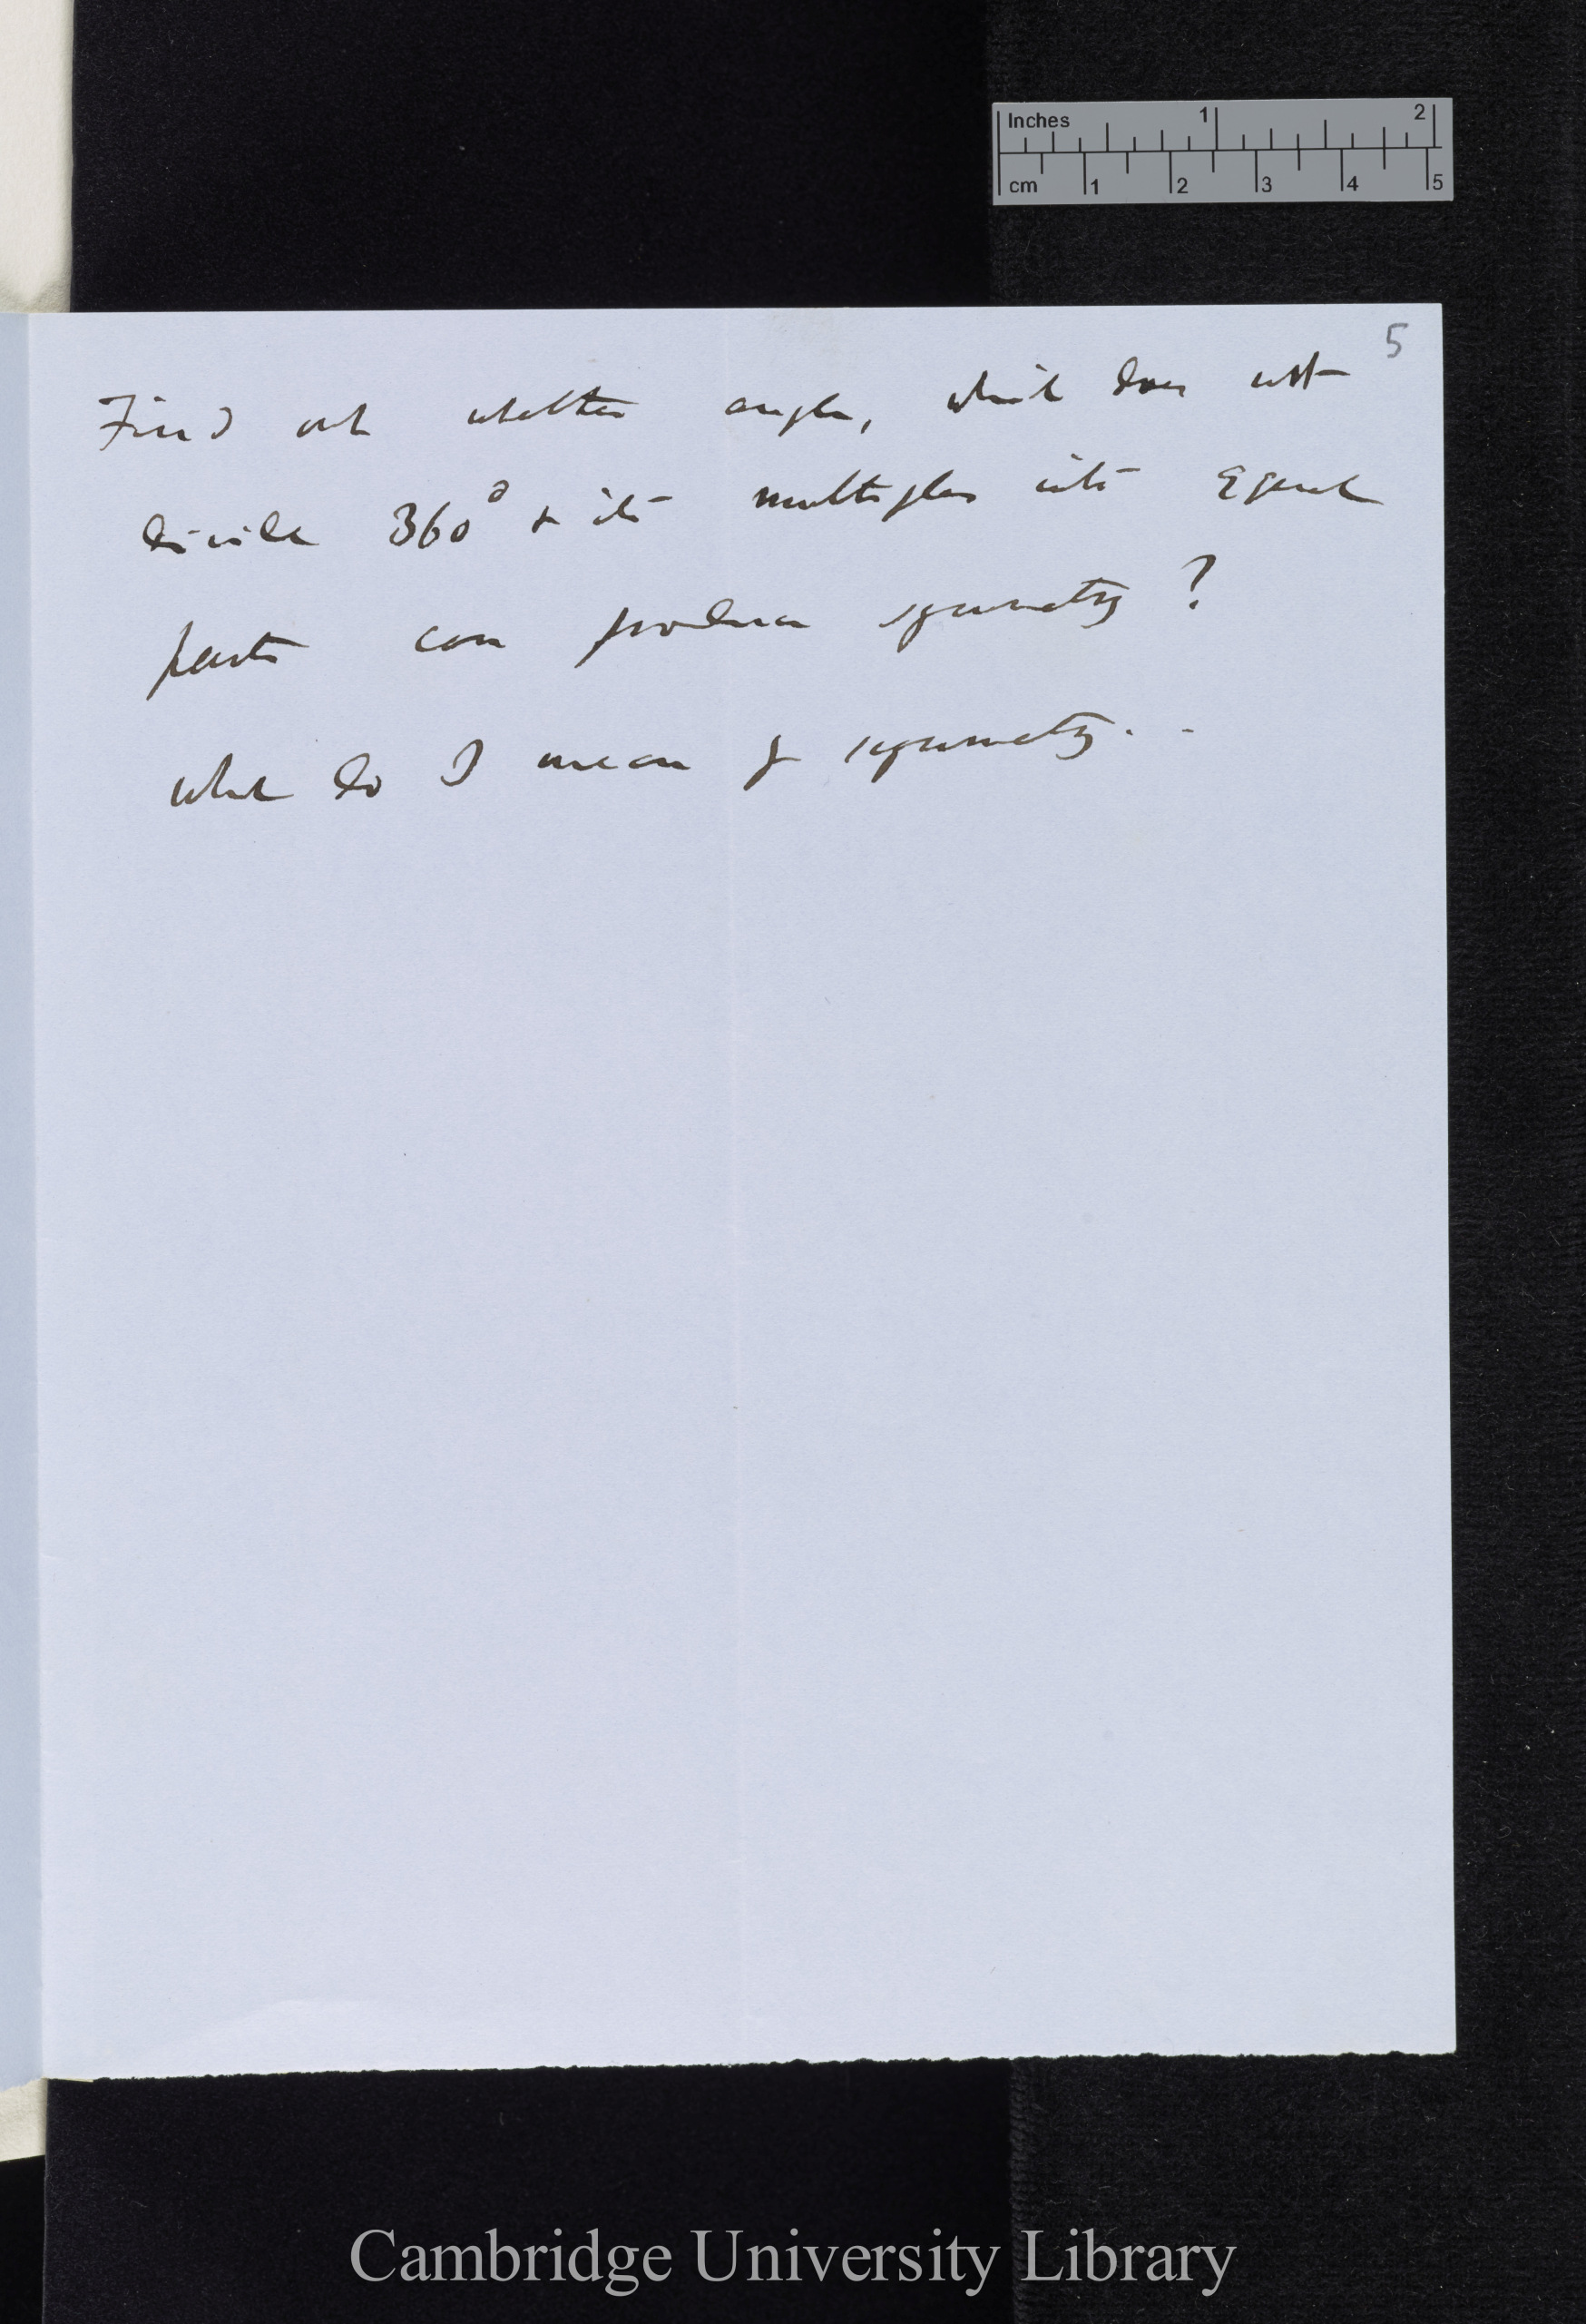 Inches 1 2
cm 1 2 3 4 5
5
Find out whether angle, which does not
divide 360° & its multiples into equal
parts can produce symmetry?
what do I mean by symmetry. -
Cambridge University Library